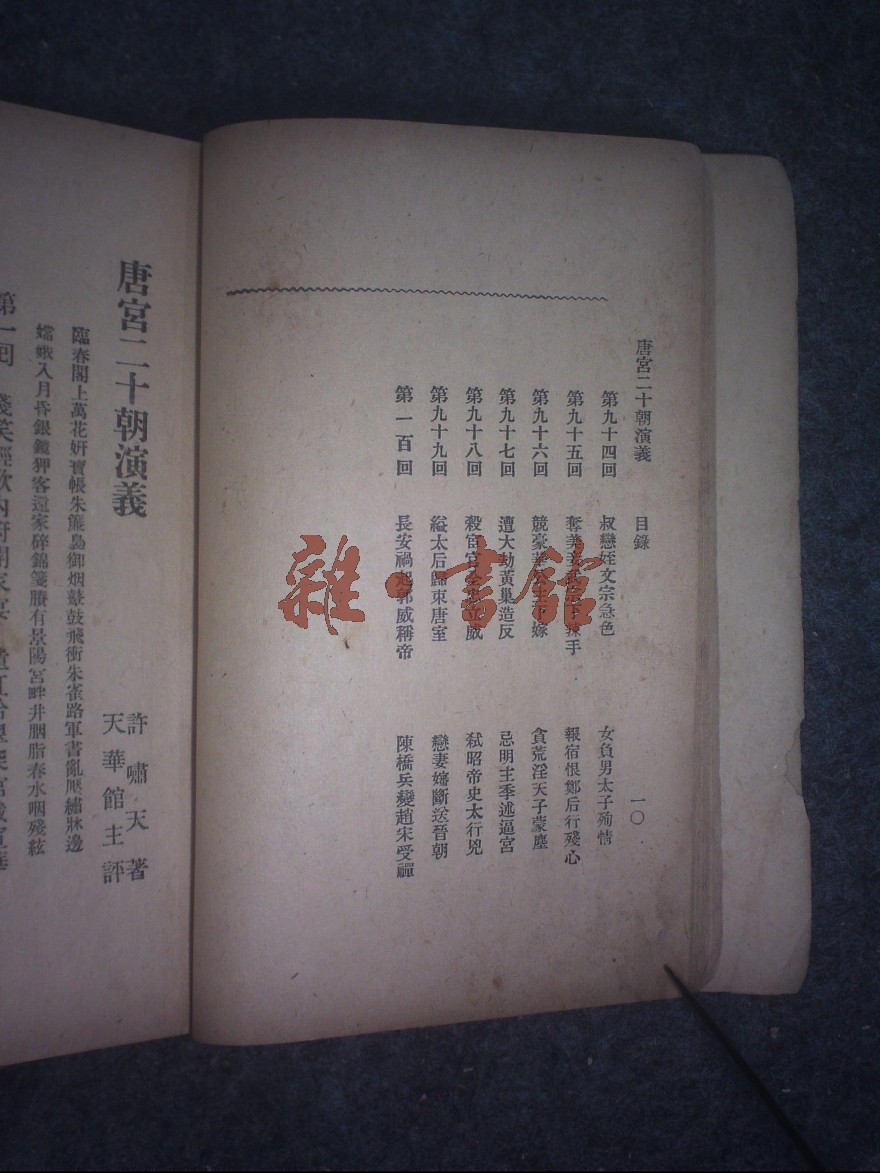 唐宮二十朝演義　目錄　一〇
第九十四回　叔戀姪文宗急色　女負男太子殉情
第九十五回　奪美妾　辣手　報宿恨鄭后行殘心
第九十六回　競豪華公主下嫁　貪荒淫天子蒙塵
第九十七回　遭大劫黃巢造反　忌明主季述逼宮
第九十八回　殺宦官　立威　弒昭帝史太行兇
第九十九回　縊太后歸束唐室　戀妻嬸斷送晉朝
第一百回　長安禍起郭威稱帝　陳橋兵變趙宋受禪
雜·書館
唐宮二十朝演義
許嘯天著
天華館主評
臨春閣上萬花妍寶帳朱簾裊御烟鼙鼓飛衝朱雀路軍書亂壓繡牀邊
嫦娥入月昏銀鏡狎客還家碎錦箋賸有景陽宮畔井胭脂春水咽殘絃
第一回